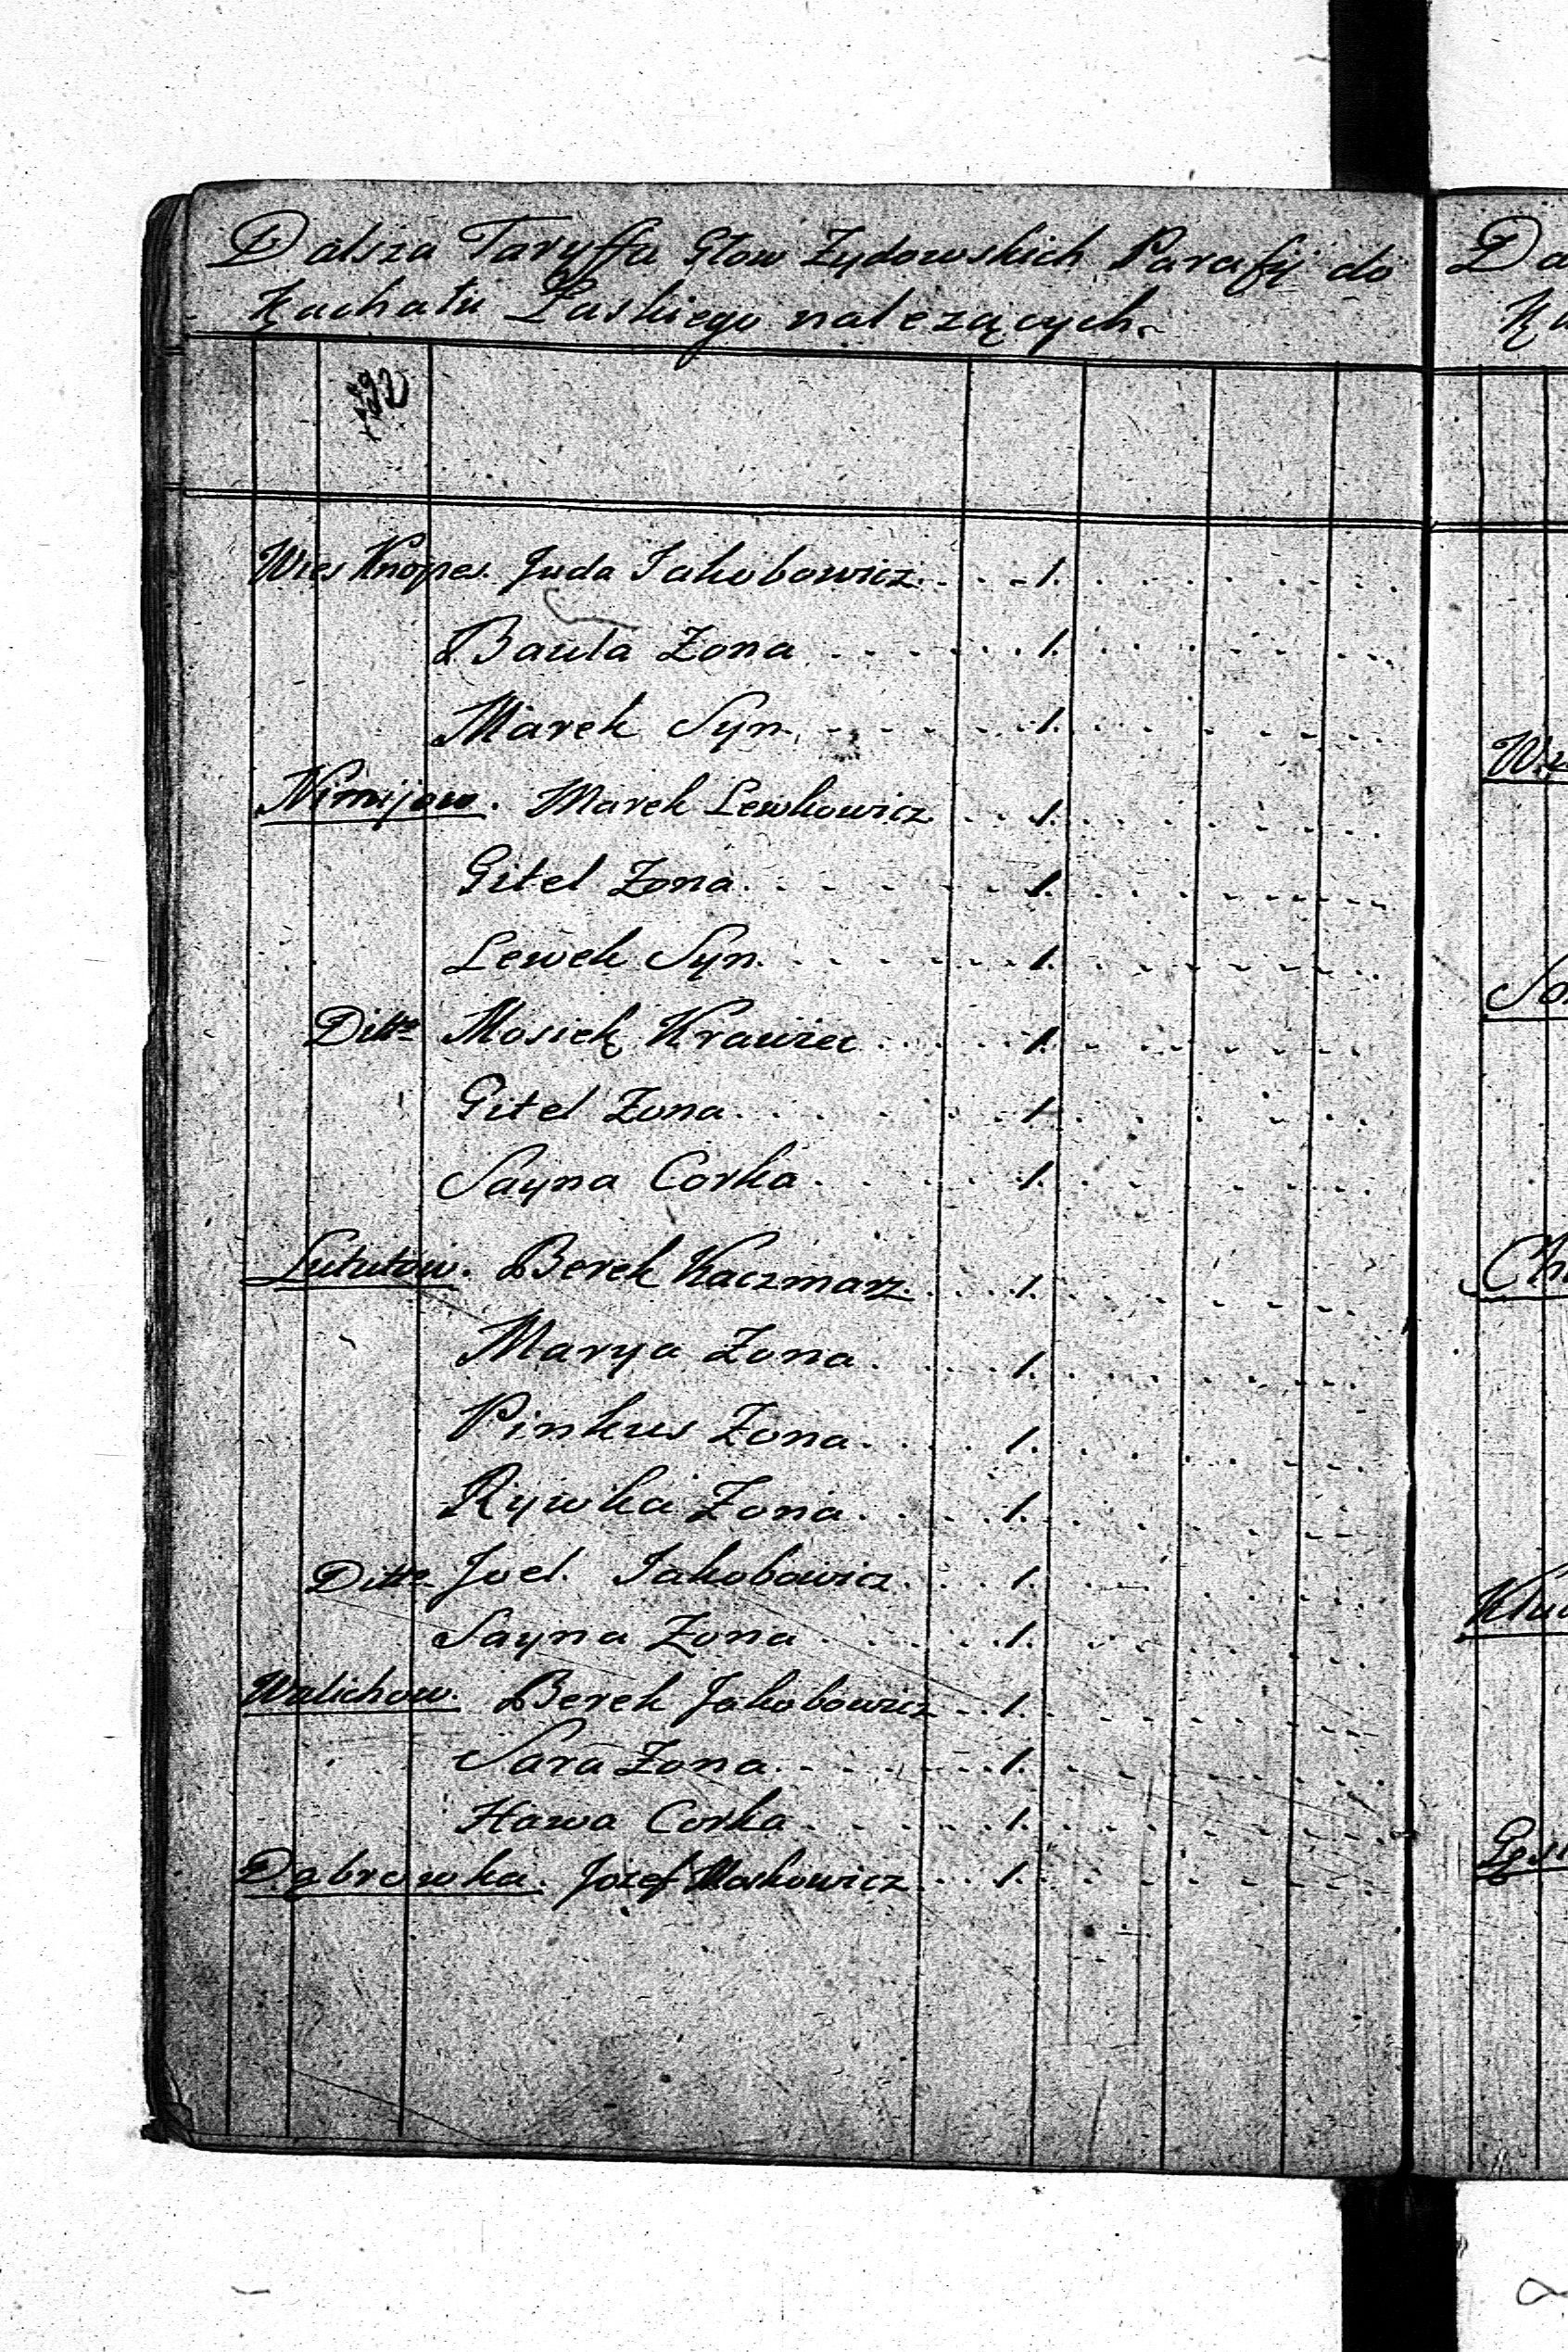 Dalsza Taryffa Głow Zydowskich Parafij do
Kachału Łaskiego nalezących.
Wies Knopes. Juda Jakobowicz. 1.
Baula Zona 1.
Marek Syn. 1.
Nimijow. Marek Lewkowicz 1.
Gitel Zona. 1.
Lewek Syn. 1.
Ditto Mosiek Krawiec 1.
Gitel Zona. 1.
Sayna Corka. 1.
Lututow. Berek Kaczmarz. 1.
Marya Zona. 1.
Pinkus Zona. 1.
Rywka Zona. 1.
Ditto Joel. Jakobowicz. 1.
Sayna Zona 1.
Walichow. Berek Jakobowicz 1.
Sara Zona. 1.
Hawa Corka. 1.
Dąbrowka. Jozef Moskowicz 1.
Da
Wi
So
Ch
Klu